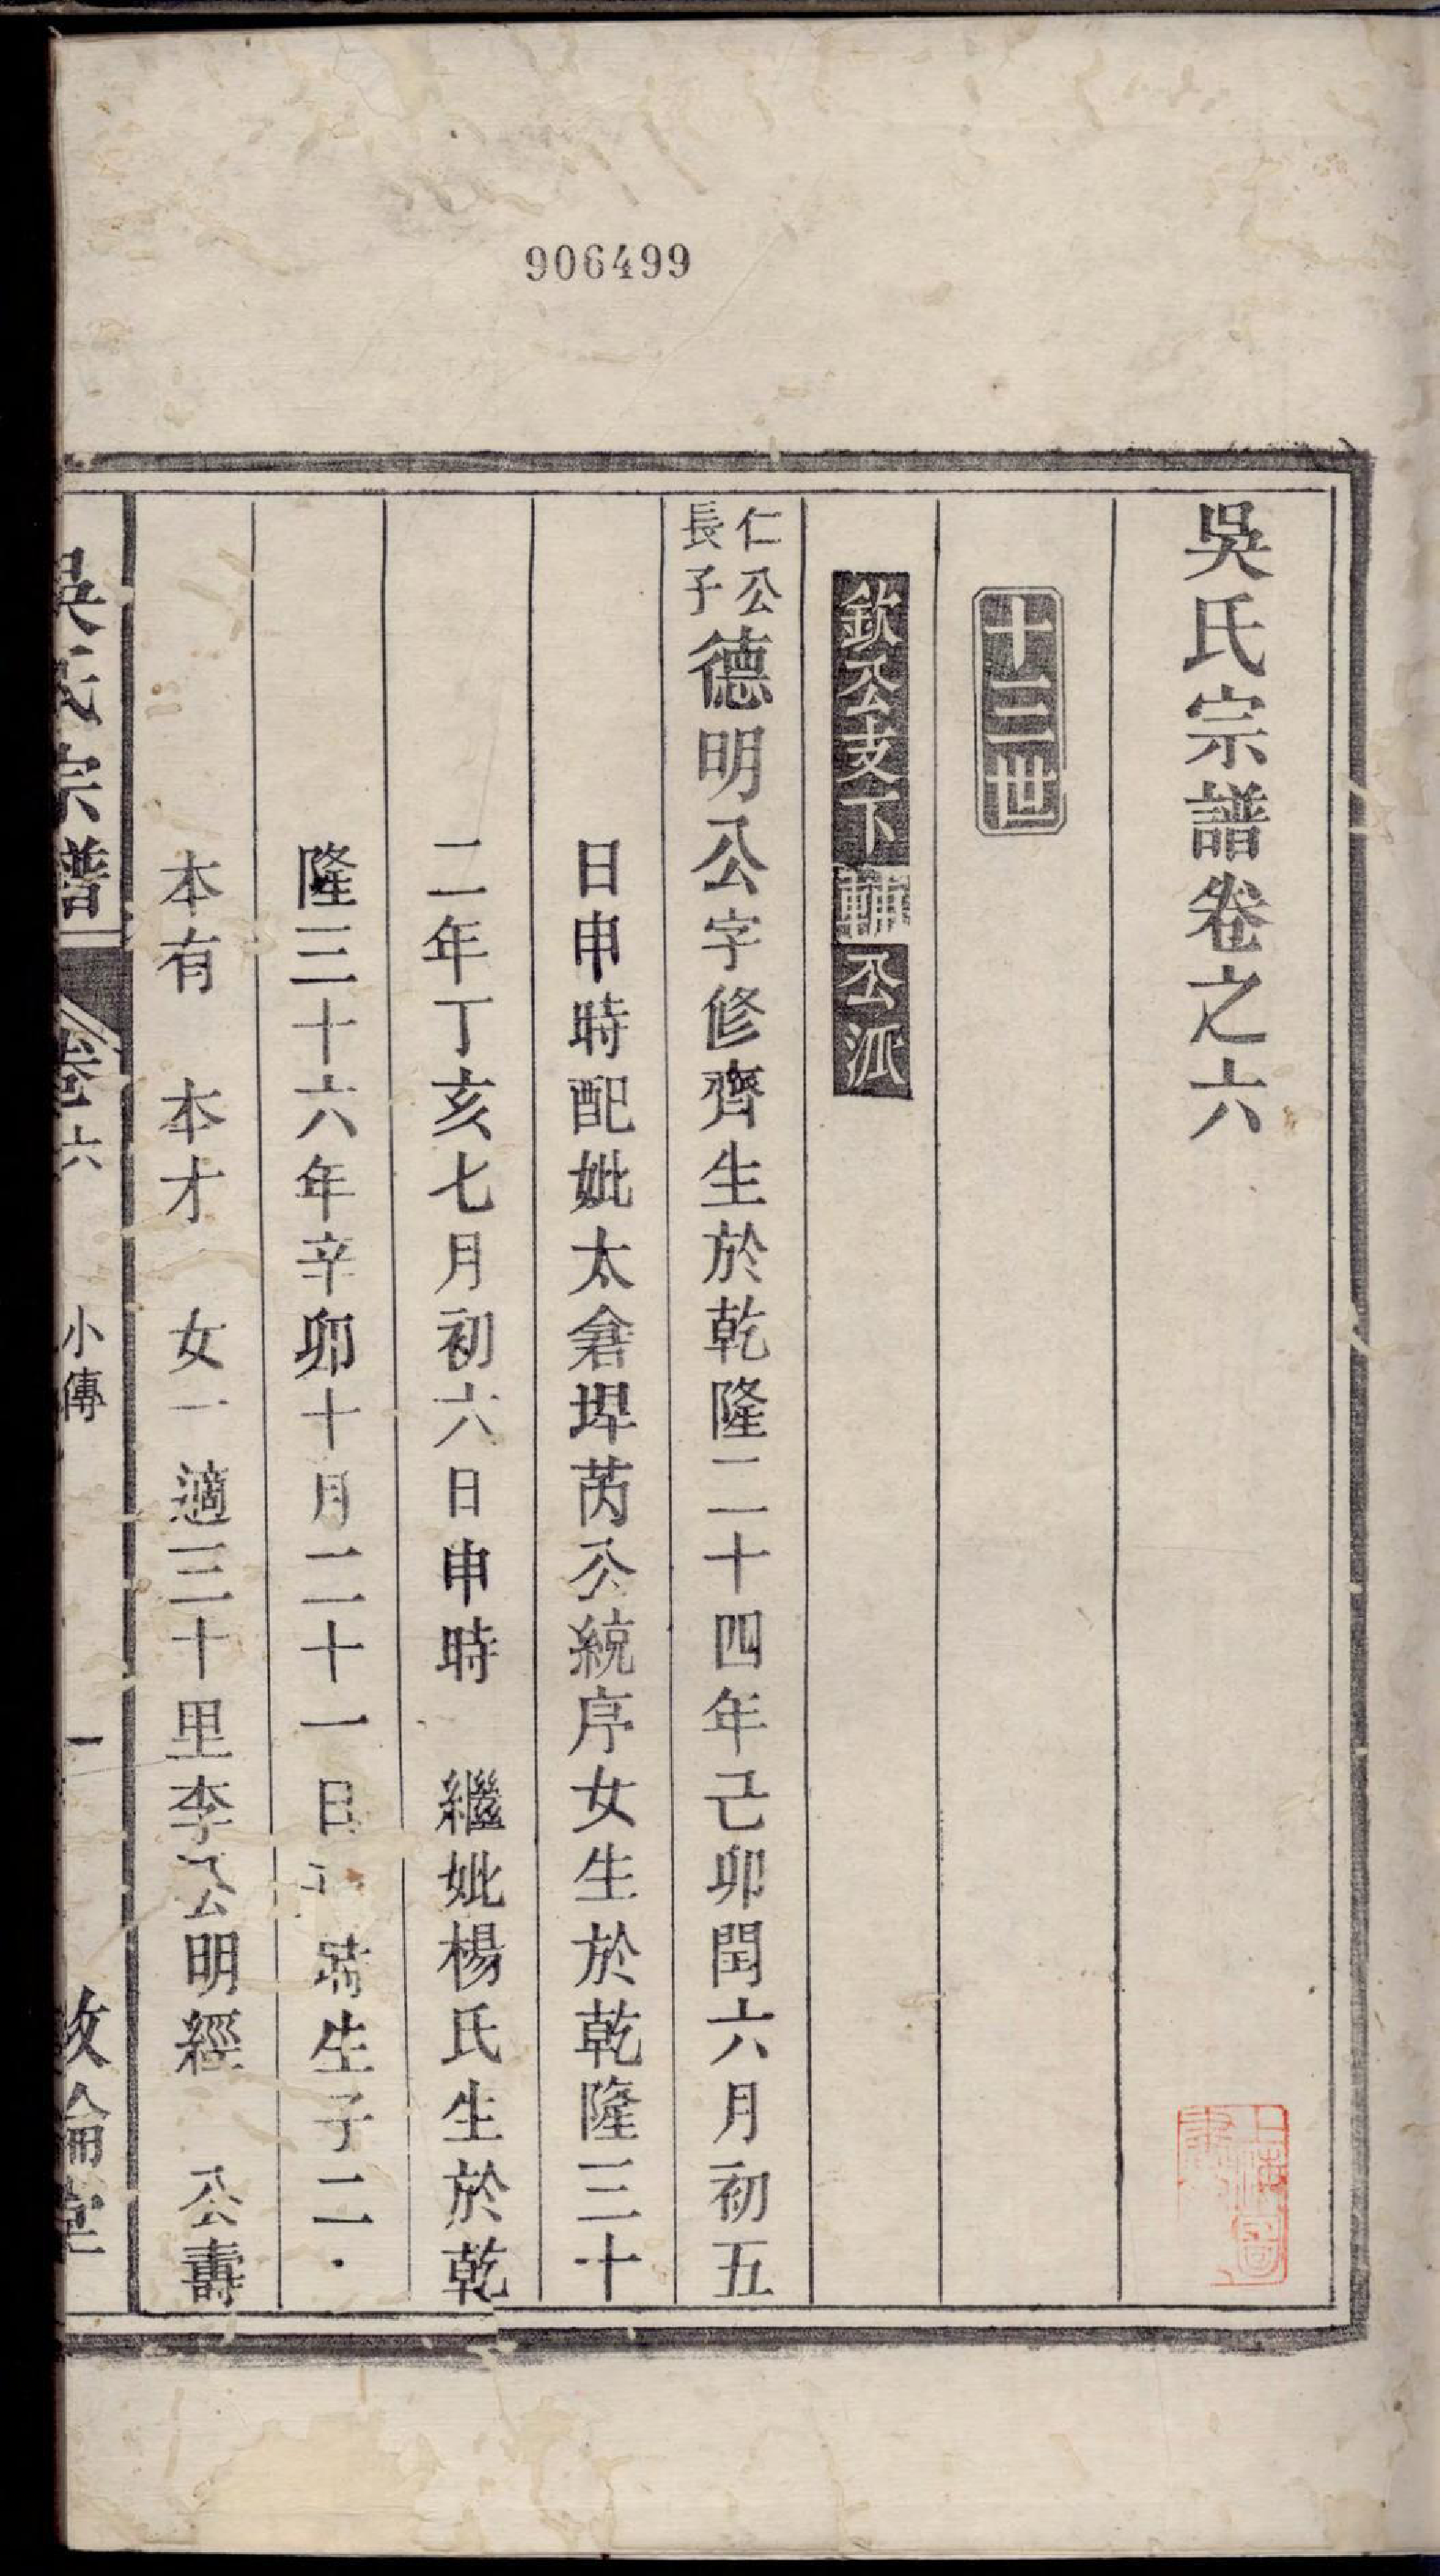 906499
吳氏宗譜卷之六
十三世
欽公支下輔公派
仁公
長子
德明公字修齊生於乾隆二十四年己卯閏六月初五
日申時配妣太倉埠芮公統序女生於乾隆三十
二年丁亥七月初六日申時　繼妣楊氏生於乾
隆三十六年辛卯十月二十一日時生子二
本有　本才　女一適三十里李公明經　公壽
吳氏宗譜　卷六　小傳　一　敦倫堂
上海圖書